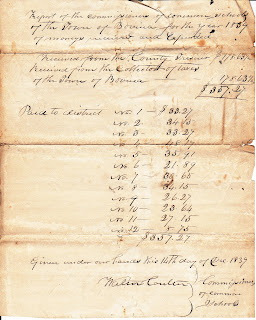 Report of the commissioners of common schools
of the Town of Bovina for the year 1837
of moneys received and Expended
Received from the County Treasurer $178.63½
Received from the Collector of taxes
of the Town of Bovina 178.63½
$357.27
Paid to district No. 1 — $33.27
No. 2 — 34.15
No. 3 — 33.27
No. 4 —
No. 5 — 35.91
No. 6 — 21.89
No. 7 —
No. 8 — 34.15
No. 9 — 26.27
No. 10 — 23.64
No. 11 — 27.15
No. 12 — 8.75
$357.27
Given under our hands this 14th day of 1837
Coulter Commissioners
of common
Schools